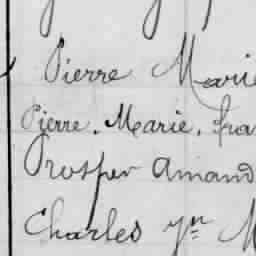 Pierre Marie
Pierre. Marie. fra
Prosper Amand
Charles yn M